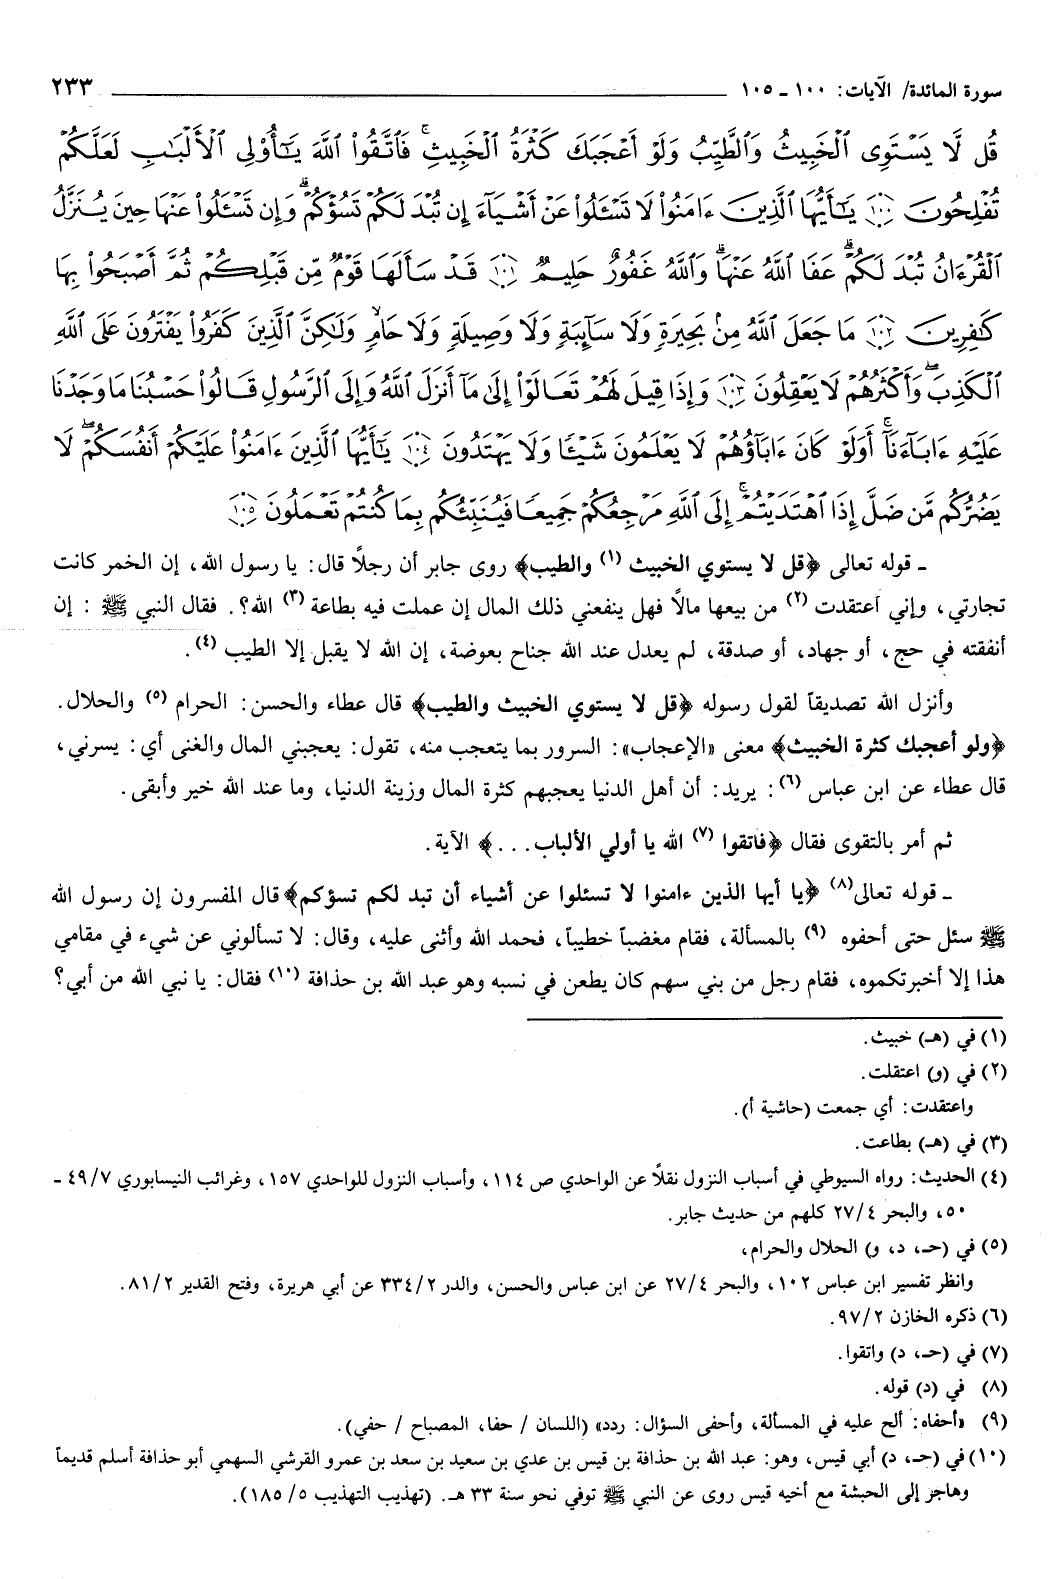 سورة المائدة/ الآيات: ١٠٠ ـ ١٠٥ ٢٣٣
قُل لَّا يَسْتَوِى ٱلْخَبِيثُ وَٱلطَّيِّبُ وَلَوْ أَعْجَبَكَ كَثْرَةُ ٱلْخَبِيثِ ۚ فَٱتَّقُوا۟ ٱللَّهَ يَـٰٓأُو۟لِى ٱلْأَلْبَـٰبِ لَعَلَّكُمْ
تُفْلِحُونَ ﴿١٠٠﴾ يَـٰٓأَيُّهَا ٱلَّذِينَ ءَامَنُوا۟ لَا تَسْـَٔلُوا۟ عَنْ أَشْيَآءَ إِن تُبْدَ لَكُمْ تَسُؤْكُمْ ۖ وَإِن تَسْـَٔلُوا۟ عَنْهَا حِينَ يُنَزَّلُ
ٱلْقُرْءَانُ تُبْدَ لَكُمْ ۗ عَفَا ٱللَّهُ عَنْهَا ۗ وَٱللَّهُ غَفُورٌ حَلِيمٌ ﴿١٠١﴾ قَدْ سَأَلَهَا قَوْمٌ مِّن قَبْلِكُمْ ثُمَّ أَصْبَحُوا۟ بِهَا
كَـٰفِرِينَ ﴿١٠٢﴾ مَا جَعَلَ ٱللَّهُ مِنۢ بَحِيرَةٍ وَلَا سَآئِبَةٍ وَلَا وَصِيلَةٍ وَلَا حَامٍ ۙ وَلَـٰكِنَّ ٱلَّذِينَ كَفَرُوا۟ يَفْتَرُونَ عَلَى ٱللَّهِ
ٱلْكَذِبَ ۖ وَأَكْثَرُهُمْ لَا يَعْقِلُونَ ﴿١٠٣﴾ وَإِذَا قِيلَ لَهُمْ تَعَالَوْا۟ إِلَىٰ مَآ أَنزَلَ ٱللَّهُ وَإِلَى ٱلرَّسُولِ قَالُوا۟ حَسْبُنَا مَا وَجَدْنَا
عَلَيْهِ ءَابَآءَنَآ ۚ أَوَلَوْ كَانَ ءَابَآؤُهُمْ لَا يَعْلَمُونَ شَيْـًٔا وَلَا يَهْتَدُونَ ﴿١٠٤﴾ يَـٰٓأَيُّهَا ٱلَّذِينَ ءَامَنُوا۟ عَلَيْكُمْ أَنفُسَكُمْ ۖ لَا
يَضُرُّكُم مَّن ضَلَّ إِذَا ٱهْتَدَيْتُمْ ۚ إِلَى ٱللَّهِ مَرْجِعُكُمْ جَمِيعًا فَيُنَبِّئُكُم بِمَا كُنتُمْ تَعْمَلُونَ ﴿١٠٥﴾
ـ قوله تعالى ﴿قل لا يستوي الخبيث (١) والطيب﴾ روى جابر أن رجلاً قال: يا رسول الله، إن الخمر كانت
تجارتي، وإني اعتقدت (٢) من بيعها مالاً فهل ينفعني ذلك المال إن عملت فيه بطاعة (٣) الله؟. فقال النبي ﷺ : إن
أنفقته في حج، أو جهاد، أو صدقة، لم يعدل عند الله جناح بعوضة، إن الله لا يقبل إلا الطيب (٤).
وأنزل الله تصديقاً لقول رسوله ﴿قل لا يستوي الخبيث والطيب﴾ قال عطاء والحسن: الحرام (٥) والحلال.
﴿ولو أعجبك كثرة الخبيث﴾ معنى «الإعجاب»: السرور بما يتعجب منه، تقول: يعجبني المال والغنى أي: يسرني،
قال عطاء عن ابن عباس (٦): يريد: أن أهل الدنيا يعجبهم كثرة المال وزينة الدنيا، وما عند الله خير وأبقى.
ثم أمر بالتقوى فقال ﴿فاتقوا (٧) الله يا أولي الألباب. . .﴾ الآية.
ـ قوله تعالى(٨) ﴿يا أيها الذين ءامنوا لا تسئلوا عن أشياء أن تبد لكم تسؤكم﴾ قال المفسرون إن رسول الله
ﷺ سئل حتى أحفوه (٩) بالمسألة، فقام مغضباً خطيباً، فحمد الله وأثنى عليه، وقال: لا تسألوني عن شيء في مقامي
هذا إلا أخبرتكموه، فقام رجل من بني سهم كان يطعن في نسبه وهو عبد الله بن حذافة (١٠) فقال: يا نبي الله من أبي؟
(١) في (هـ) خبيث.
(٢) في (و) اعتقلت.
واعتقدت: أي جمعت (حاشية أ).
(٣) في (هـ) بطاعت.
(٤) الحديث: رواه السيوطي في أسباب النزول نقلاً عن الواحدي ص ١١٤، وأسباب النزول للواحدي ١٥٧، وغرائب النيسابوري ٧/ ٤٩ ـ
٥٠، والبحر ٤/ ٢٧ كلهم من حديث جابر.
(٥) في (حـ، د، و) الحلال والحرام،
وانظر تفسير ابن عباس ١٠٢، والبحر ٤/ ٢٧ عن ابن عباس والحسن، والدر ٢/ ٣٣٤ عن أبي هريرة، وفتح القدير ٢/ ٨١.
(٦) ذكره الخازن ٢/ ٩٧.
(٧) في (حـ، د) واتقوا.
(٨) في (د) قوله.
(٩) «أحفاه: ألح عليه في المسألة، وأحفى السؤال: ردد» (اللسان / حفا، المصباح / حفي).
(١٠) في (حـ، د) أبي قيس، وهو: عبد الله بن حذافة بن قيس بن عدي بن سعيد بن سعد بن عمرو القرشي السهمي أبو حذافة أسلم قديماً
وهاجر إلى الحبشة مع أخيه قيس روى عن النبي ﷺ توفي نحو سنة ٣٣ هـ. (تهذيب التهذيب ٥/ ١٨٥).